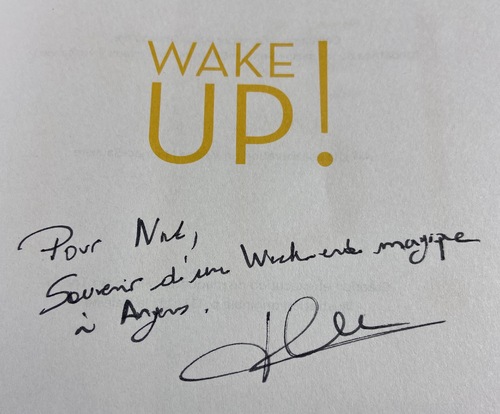 WAKE
UP!
Pour
Souvenir d'un Week-end magique
à Angers.